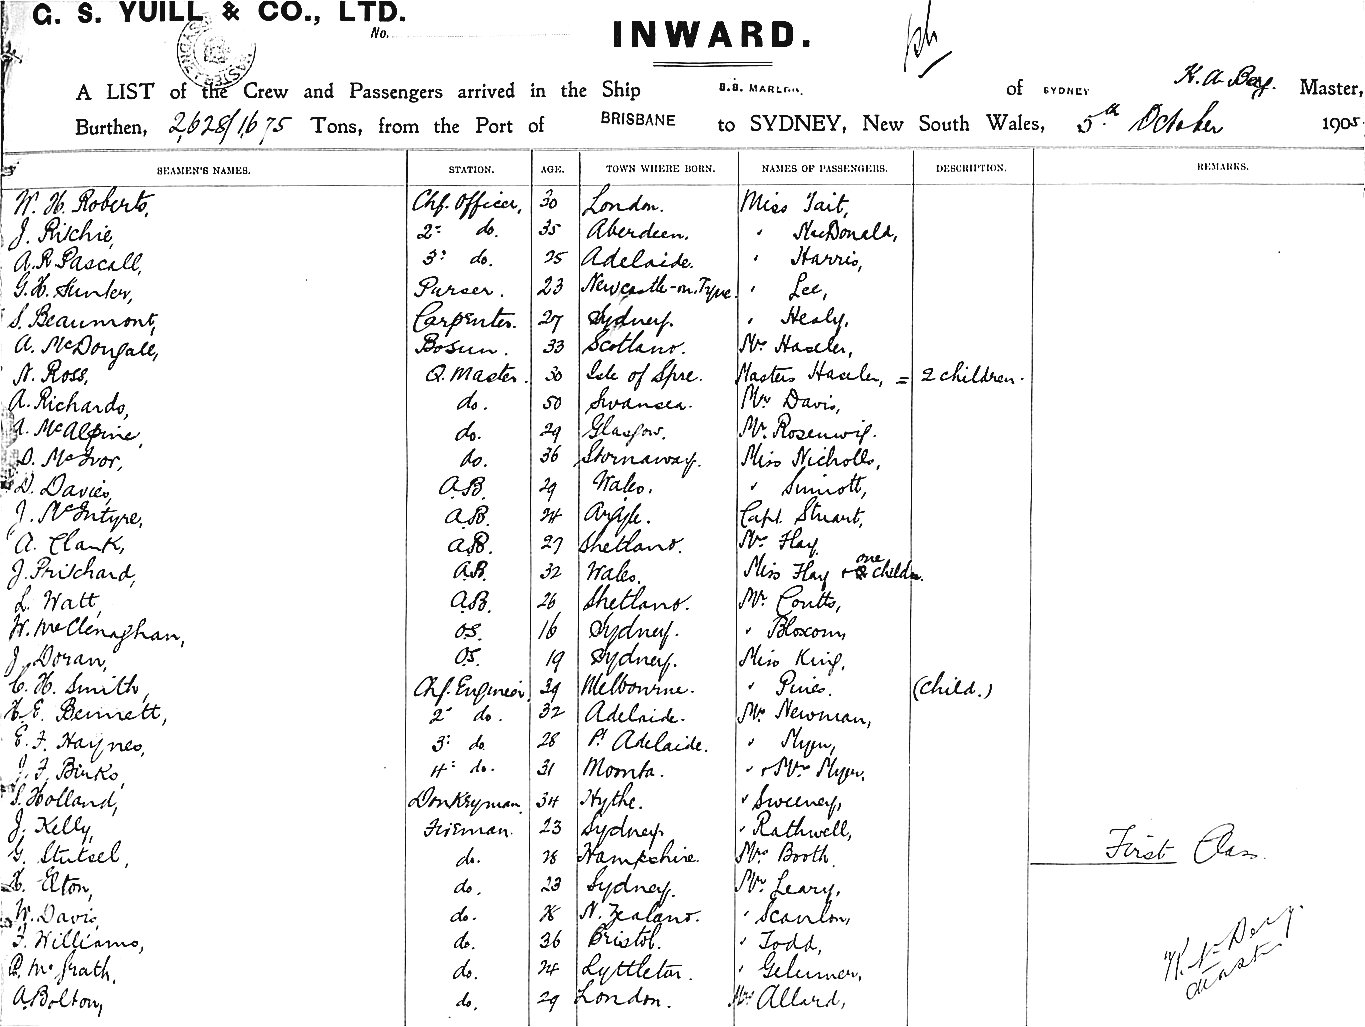 G. S. YUILL & CO., LTD.
No.
INWARD.
A LIST of the Crew and Passengers arrived in the Ship S.S. MARLOO. of SYDNEY K. A. Berg. Master,
Burthen, 2,628/1,675 Tons, from the Port of BRISBANE to SYDNEY, New South Wales, 5th October 1905.
SEAMEN'S NAMES. STATION. AGE. TOWN WHERE BORN. NAMES OF PASSENGERS. DESCRIPTION. REMARKS.
W. H. Roberts, Chf. Officer, 30 London. Miss Tait,
J. Ritchie, 2: do. 35 Aberdeen. " McDonald,
A. R. Pascall, 3: do. 25 Adelaide. " Harris,
G. H. Hunter, Purser. 23 Newcastle-on-Tyne. " Lee,
S. Beaumont, Carpenter. 27 Sydney. " Healy,
A. McDougall, Bosun. 33 Scotland. Mrs Haseler,
N. Ross, Q. Master. 30 Isle of Spye. Masters Haseler, = 2 children.
A. Richards, do. 50 Swansea. Mrs Davis,
A. McAlpine, do. 29 Glasgow. Mr. Rosenwig.
D. McIvor, do. 36 Stornaway. Miss Nicholls,
D. Davies, A.B. 29 Wales. " Sinnott,
J. McIntyre, A.B. 24 Argyle. Capt. Stuart,
A. Clark, A.B. 27 Shetland. Mrs Hay
J. Pritchard, A.B. 32 Wales. Miss Hay + one child
L. Watt, A.B. 26 Shetland. Mr. Coutts,
W. McClenaghan, O.S. 16 Sydney. " Bloxcom,
J. Doran, O.S. 19 Sydney. Miss King,
C. H. Smith, Chf. Engineer 39 Melbourne. " Pines. (Child.)
H. E. Bennett, 2: do. 32 Adelaide. Mr. Newman,
E. J. Haynes, 3: do. 28 Pt Adelaide. " Myer,
J. F. Binks, 4: do. 31 Moonta. " + Mrs Myer,
S. Holland, Donkeyman. 34 Hythe. " Sweeney,
J. Kelly, Fireman. 23 Sydney. " Rathwell,
G. Stutsel, do. 28 Hampshire. Mrs Booth First Class.
H. Elton, do. 23 Sydney. Mr. Leary,
W. Davis, do. N. Zealand. " Scanlon,
F. Williams, do. 36 Bristol. " Todd,
P. McGrath, do. 24 Lyttleton. "
A. Bolton, do. 29 London. Allard,
K. A. Berg.
Master